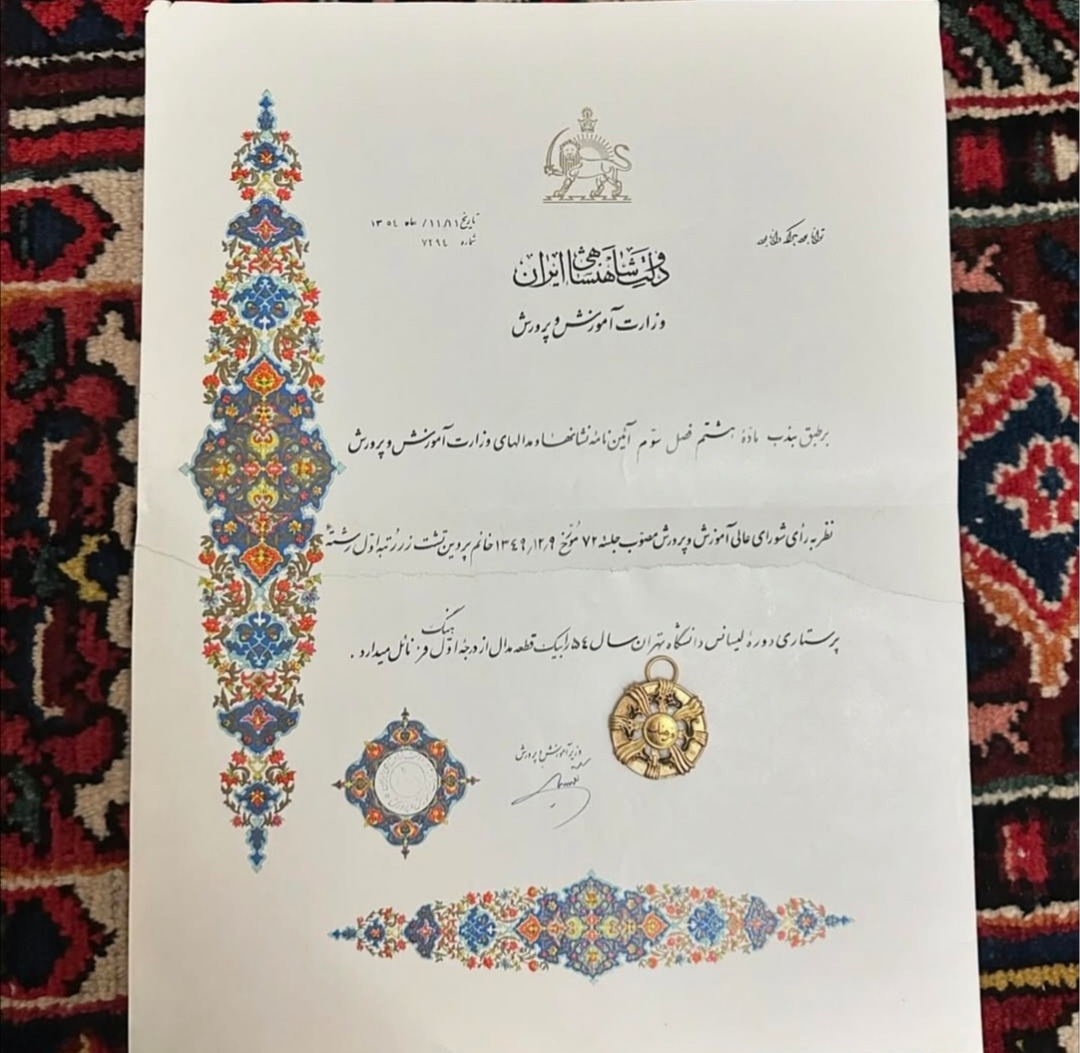 توانا بود هر که دانا بود
تاریخ ۱۱/۱۱/ ماه ۱۳۵۴
شماره ۷۲۹۴
دولت شاهنشاهی ایران
وزارت آموزش و پرورش
برطبق بند ب مادهٔ هشتم فصل سوّم آئین نامهٔ نشانها و مدالهای وزارت آموزش و پرورش
نظر به رأی شورای عالی آموزش و پرورش مصوّب جلسهٔ ۷۲ مُورّخ ۱۳۴۹/۱۲/۹ خانم پروین تشت زر رتبه اوّل رشتهٔ
پرستاری دورهٔ لیسانس دانشگاه تهران سال ۵۴ را بیک قطعه مدال از درجهٔ اوّل فرهنگ نائل میدارد .
وزیر آموزش و پرورش
فرهنگ